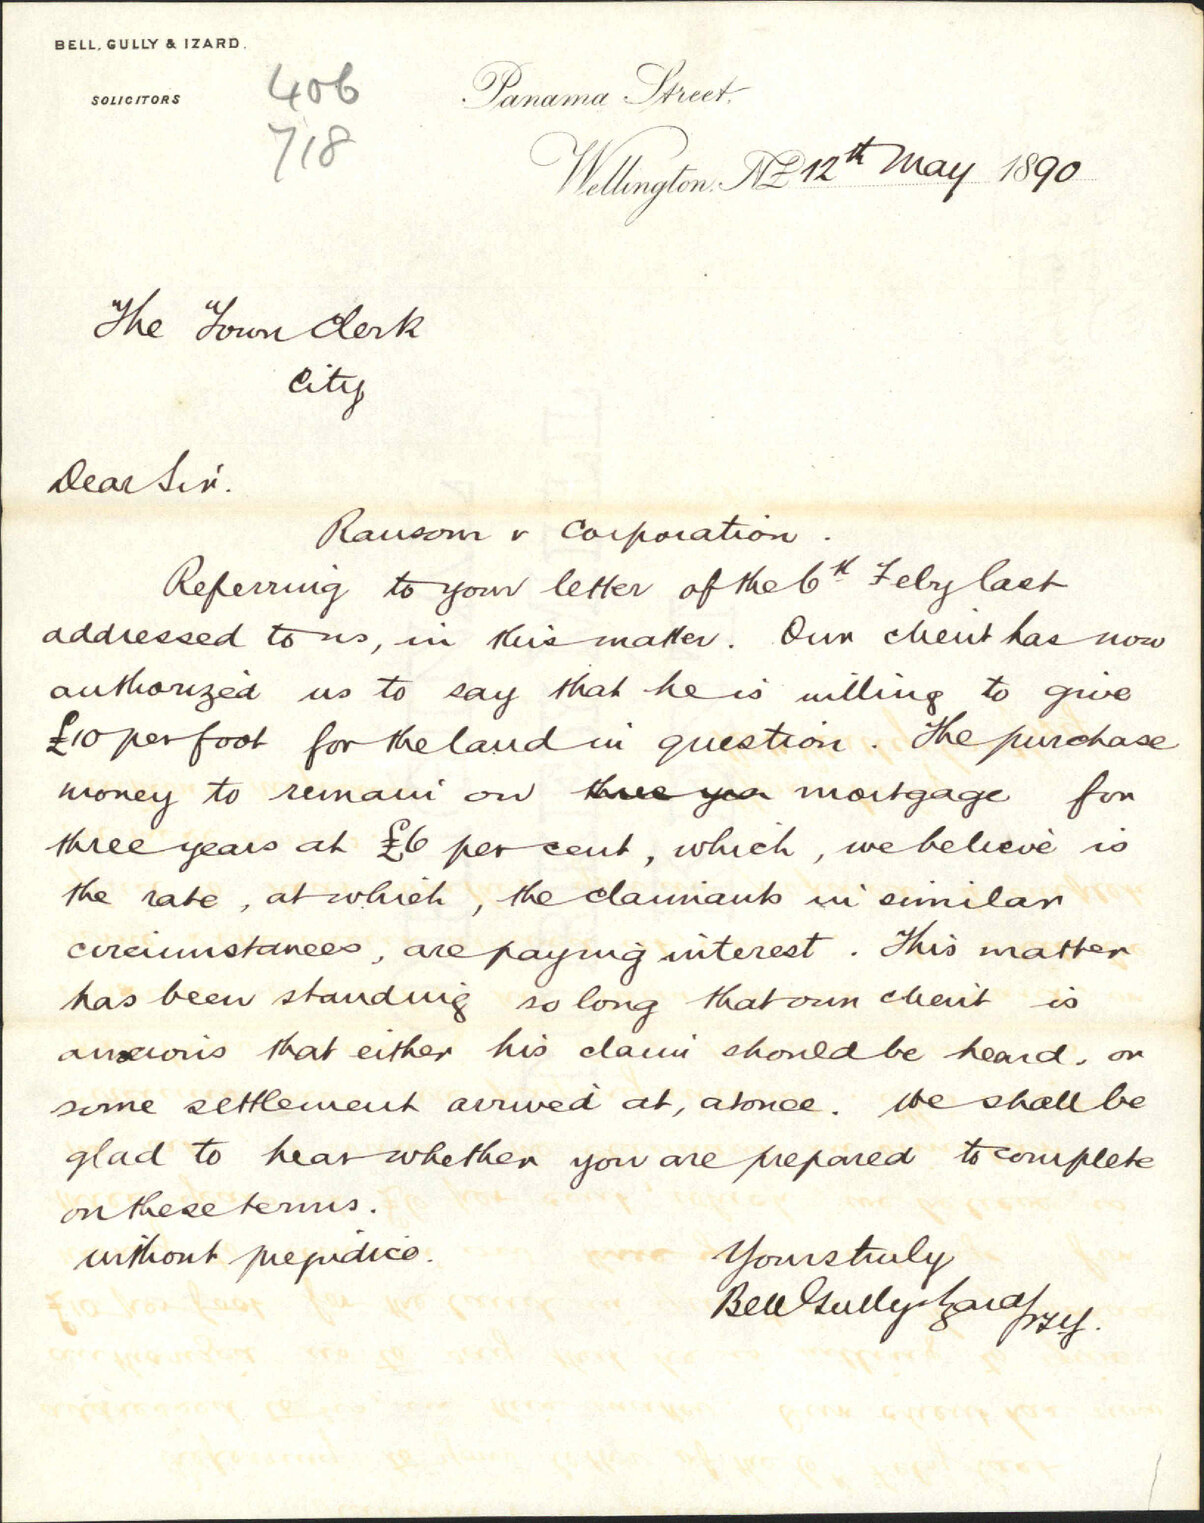 BELL, GULLY & IZARD.
SOLICITORS
406
718
Panama Street,
Wellington, NZ 12th May 1890
The Town Clerk
City
Dear Sir.
Ransom v Corporation.
Referring to your letter of the 6th Feby last
addressed to us, in this matter. Our client has now
authorized us to say that he is willing to give
£10 per foot for the land in question. The purchase
money to remain on three yea mortgage for
three years at £6 per cent, which, we believe is
the rate, at which, the claimants in similar
circumstances, are paying interest. This matter
has been standing so long that our client is
anxious that either his claim should be heard, or
some settlement arrived at, at once. We shall be
glad to hear whether you are prepared to complete
on these terms.
without prejudice.
Yours truly
Bell Gully & Izard